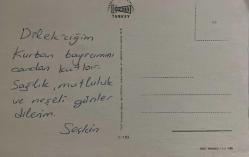 KESKİN
TURKEY
Dilek'ciğim
Kurban bayramını
candan kutlar.
Sağlık, mutluluk
ve neşeli günler
dilerim.
Seçkin